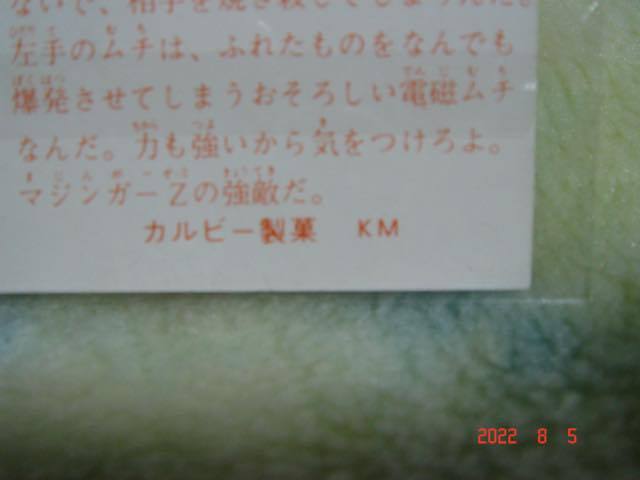 ないで、相手を焼き殺してしまうんだ。
左手のムチは、ふれたものをなんでも
爆発させてしまうおそろしい電磁ムチ
なんだ。力も強いから気をつけろよ。
マジンガーZの強敵だ。
カルビー製菓 KM
2022 8 5